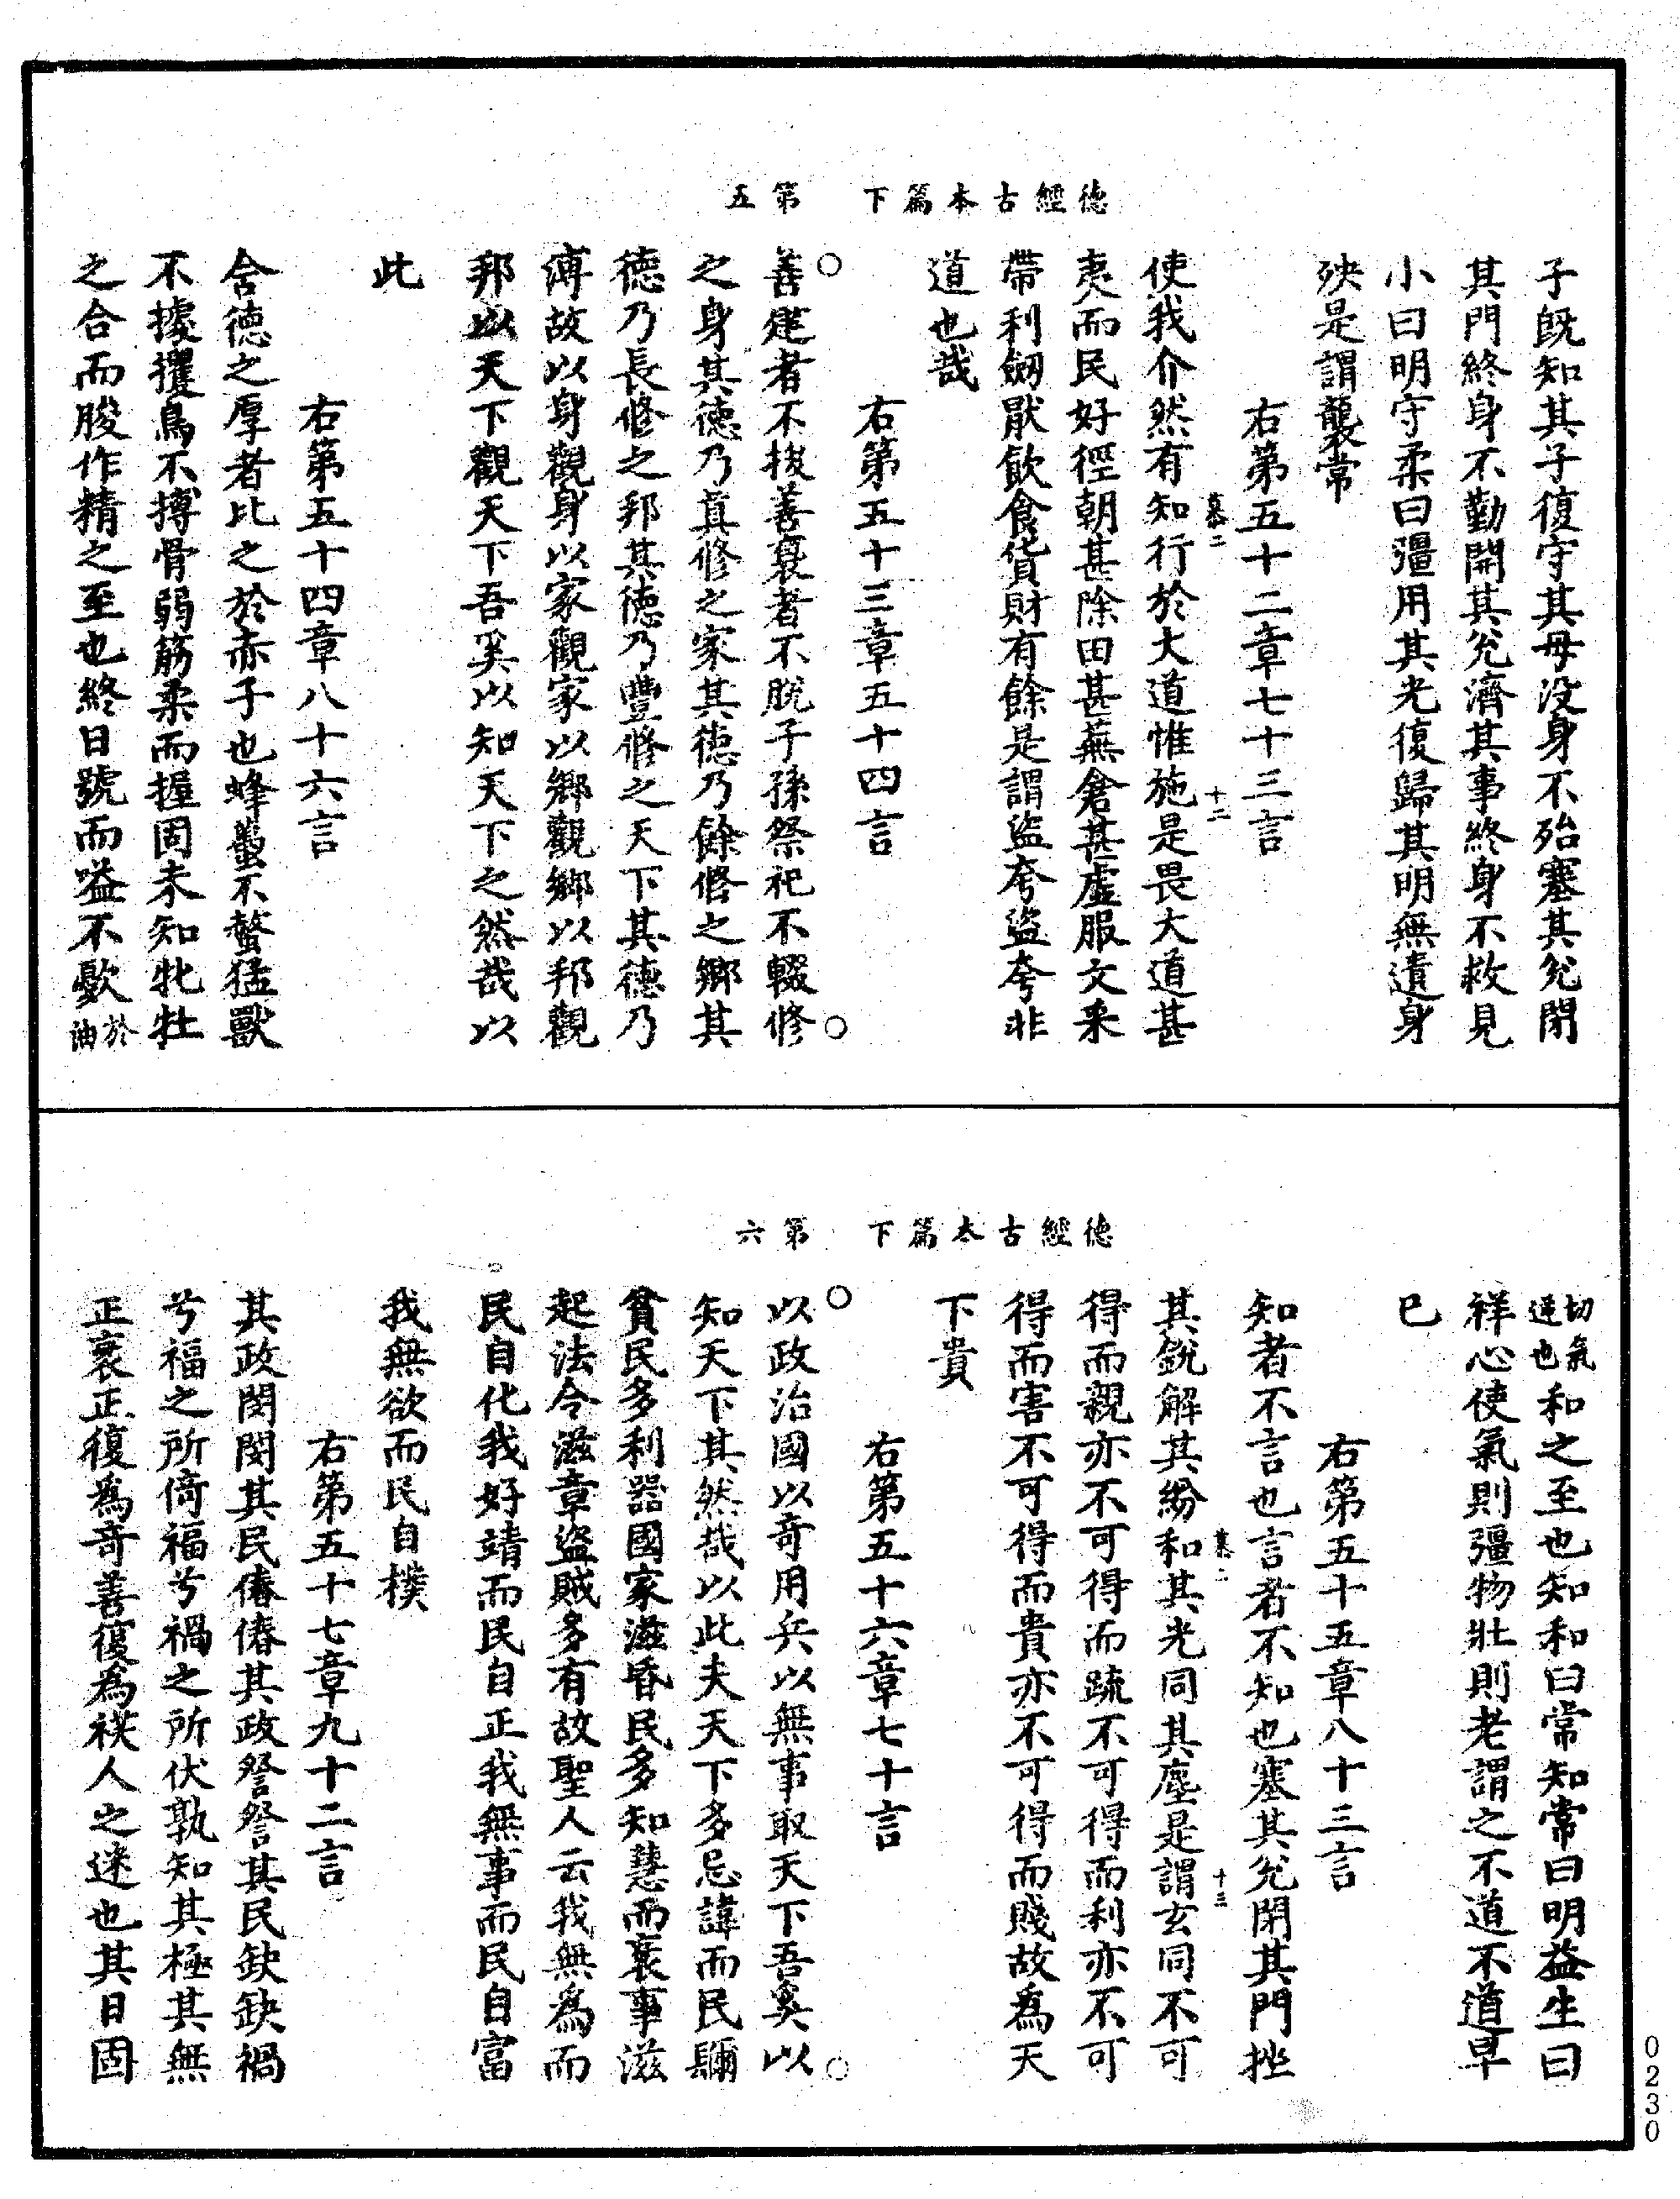 德經古本篇下　第五
子旣知其子復守其母没身不殆塞其兊閉
其門終身不勤開其兊濟其事終身不救見
小曰明守柔曰彊用其光復歸其明無遺身
殃是謂襲常
右第五十二章七十三言
慕二　十二
使我介然有知行於大道惟施是畏大道甚
夷而民好徑朝甚除田甚蕪倉甚虛服文采
帶利劒猒飲食貨財有餘是謂盜夸盜夸非
道也哉
右第五十三章五十四言
○　○
善建者不拔善裒者不脫子孫祭祀不輟修
之身其德乃真修之家其德乃餘修之鄉其
德乃長修之邦其德乃豐修之天下其德乃
溥故以身觀身以家觀家以鄉觀鄉以邦觀
邦以天下觀天下吾奚以知天下之然哉以
此
右第五十四章八十六言
含德之厚者比之於赤子也蜂蠆不螫猛獸
不據攫鳥不搏骨弱筋柔而握固未知牝牡
之合而朘作精之至也終日號而嗌不歍於油
德經古本篇下　第六
切氣逆也和之至也知和曰常知常曰明益生曰
祥心使氣則彊物壯則老謂之不道不道早
已
右第五十五章八十三言
知者不言也言者不知也塞其兊閉其門挫
慕二　十三
其銳解其紛和其光同其塵是謂玄同不可
得而親亦不可得而疏不可得而利亦不可
得而害不可得而貴亦不可得而賤故爲天
下貴
右第五十六章七十言
○　○
以政治國以奇用兵以無事取天下吾奚以
知天下其然哉以此夫天下多忌諱而民彌
貧民多利器國家滋昏民多知慧而衺事滋
起法令滋章盜賊多有故聖人云我無爲而
民自化我好靖而民自正我無事而民自富
我無欲而民自樸
右第五十七章九十二言
其政閔閔其民偆偆其政詧詧其民缺缺禍
兮福之所倚福兮禍之所伏孰知其極其無
正衺正復爲奇善復爲祅人之迷也其日固
0230